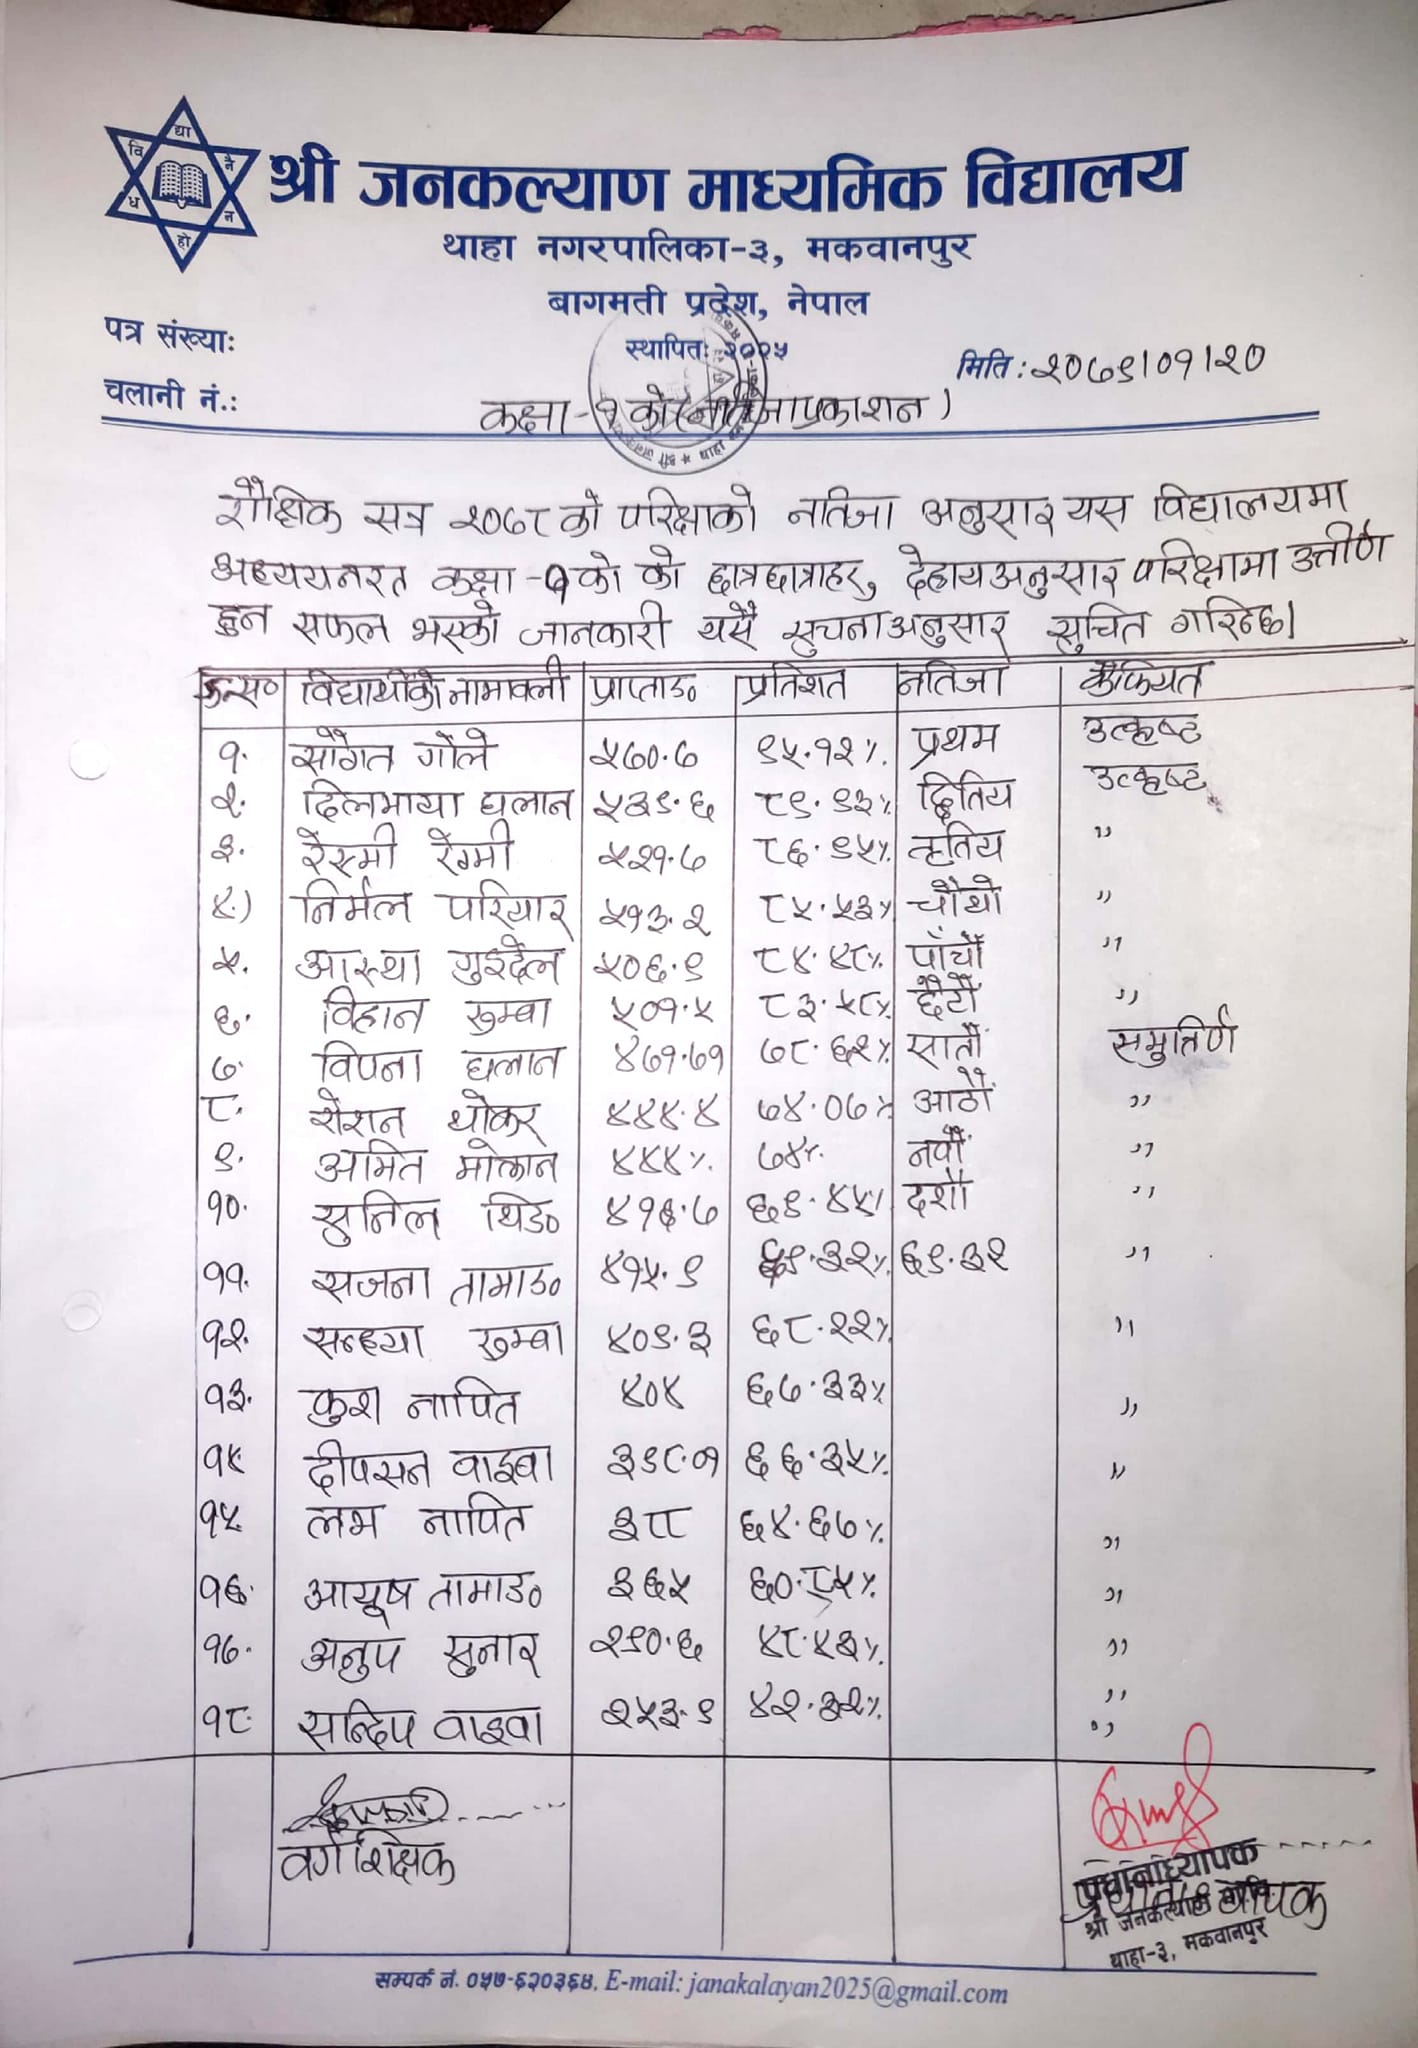 वि द्या नै न हो ध
श्री जनकल्याण माध्यमिक विद्यालय
थाहा नगरपालिका-३, मकवानपुर
बागमती प्रदेश, नेपाल
पत्र संख्याः
स्थापितः २०२५
मिति : २०७९।०१।२०
चलानी नं.:
कक्षा -१ को (नतिजा प्रकाशन)
शैक्षिक सत्र २०७८ को परिक्षाको नतिजा अनुसार यस विद्यालयमा
अध्ययनरत कक्षा -१ को को छात्रछात्राहरु, देहायअनुसार परिक्षामा उत्तीर्ण
हुन सफल भएको जानकारी यसै सुचनाअनुसार सुचित गरिन्छ।
क्र.स० विद्यार्थीको नामावली प्राप्ताङ० प्रतिशत नतिजा कैफियत
१. सौगत गोले ५७०.७ ९५.१२% प्रथम उत्कृष्ट
२. दिलमाया घलान ५३९.६ ८९.९३% द्वितिय उत्कृष्ट
३. रेस्मी रेग्मी ५२१.७ ८६.९५% तृतिय "
४.) निर्मल परियार ५१३.२ ८५.५३% चौथो "
५. आस्था गुइदेल ५०६.९ ८४.४८% पाँचौं "
६. विहान रुम्बा ५०१.५ ८३.५८% छैटौं "
७. विपना घलान ४७१.७१ ७८.६२% सातौं समुत्तिर्ण
८. रोशन थोकर ४४४.४ ७४.०७% आठौं "
९. अमित मोक्तान ४४४% ७४% नवौं "
१०. सुनिल थिङ० ४१६.७ ६९.४५% दशौं "
११. सजना तामाङ० ४१५.९ ६९.३२% ६९.३२ "
१२. सन्ध्या रुम्बा ४०९.३ ६८.२२% "
१३. कुश नापित ४०४ ६७.३३% "
१४. दीपसन वाइबा ३९८.०१ ६६.३५% "
१५. लभ नापित ३८८ ६४.६७% "
१६. आयुष तामाङ० ३६५ ६०.८५% "
१७. अनुप सुनार २९०.६ ४८.४३% "
१८. सन्दिप वाइबा २५३.९ ४२.३२% "
"
वर्ग शिक्षक
प्रधानाध्यापक
प्रधानाध्यापक
श्री जनकल्याण मा.वि.
थाहा-३, मकवानपुर
सम्पर्क नं. ०५७-६२०३६४, E-mail: janakalayan2025@gmail.com